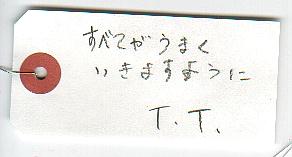 すべてがうまく
いきますように
T.T.